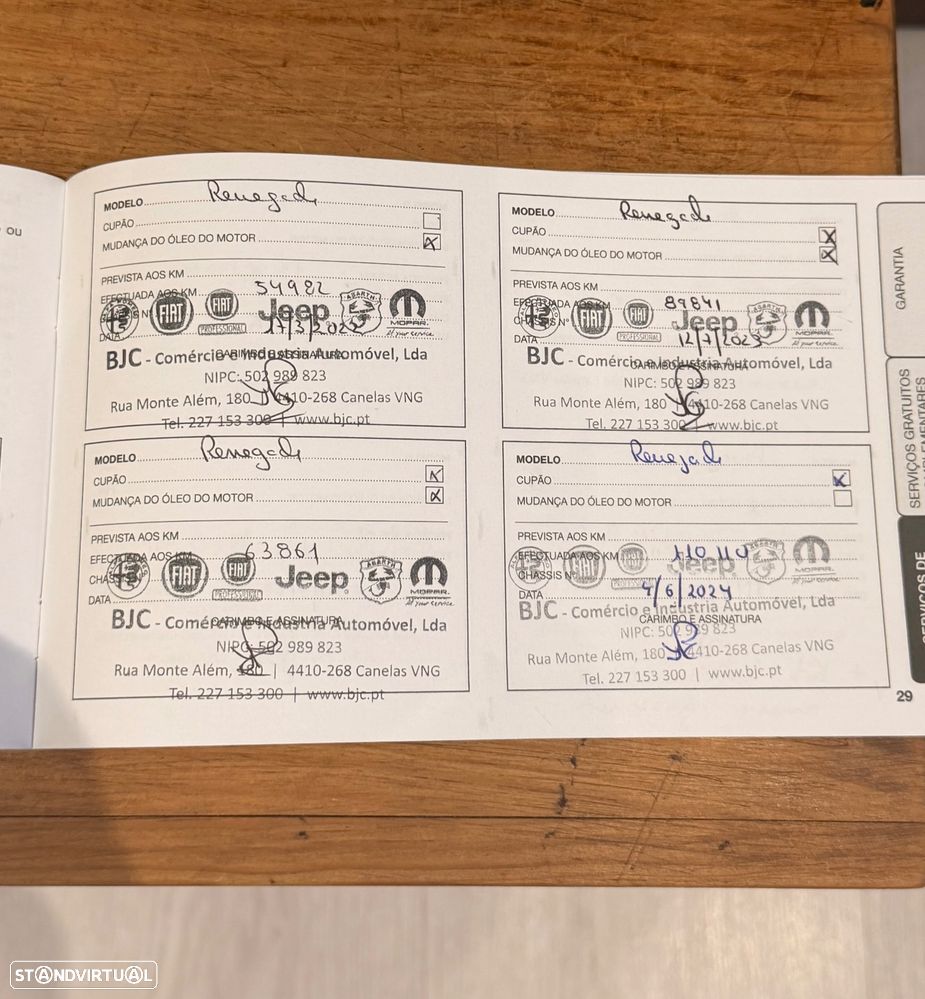 ou
MODELO Renegade
CUPÃO
MUDANÇA DO ÓLEO DO MOTOR X
PREVISTA AOS KM
EFECTUADA AOS KM 54982
CHASSIS N°
FIAT FIAT PROFESSIONAL Jeep ABARTH MOPAR.
DATA 17/3/2023
CARIMBO E ASSINATURA
BJC - Comércio e Industria Automóvel, Lda
NIPC: 502 989 823
Rua Monte Além, 180 | 4410-268 Canelas VNG
Tel. 227 153 300 | www.bjc.pt
MODELO Renegade
CUPÃO X
MUDANÇA DO ÓLEO DO MOTOR X
PREVISTA AOS KM
EFECTUADA AOS KM 63861
CHASSIS
FIAT FIAT PROFESSIONAL Jeep ABARTH MOPAR.
DATA
CARIMBO E ASSINATURA
BJC - Comércio e Industria Automóvel, Lda
NIPC: 502 989 823
Rua Monte Além, 180 | 4410-268 Canelas VNG
Tel. 227 153 300 | www.bjc.pt
MODELO Renegade
CUPÃO X
MUDANÇA DO ÓLEO DO MOTOR X
PREVISTA AOS KM
EFECTUADA AOS KM 89841
CHASSIS N°
FIAT FIAT PROFESSIONAL Jeep ABARTH MOPAR.
DATA 12/7/2023
CARIMBO E ASSINATURA
BJC - Comércio e Industria Automóvel, Lda
NIPC: 502 989 823
Rua Monte Além, 180 | 4410-268 Canelas VNG
Tel. 227 153 300 | www.bjc.pt
MODELO Renegade
CUPÃO X
MUDANÇA DO ÓLEO DO MOTOR
PREVISTA AOS KM
EFECTUADA AOS KM
CHASSIS N°
Jeep MOPAR.
DATA 4/6/2024
CARIMBO E ASSINATURA
BJC - Comércio e Industria Automóvel, Lda
NIPC: 502 989 823
Rua Monte Além, 180 | 4410-268 Canelas VNG
Tel. 227 153 300 | www.bjc.pt
29
GARANTIA
SERVIÇOS GRATUITOS
SERVIÇOS DE
STANDVIRTUAL